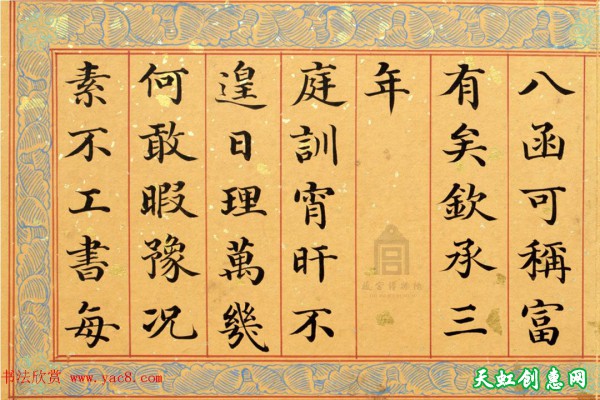 八函可稱富
有矣欽承三
年
庭訓宵旰不
遑日理萬幾
何敢暇豫况
素不工書每
故宮博物院
书法欣赏 www.yac8.com
天虹创惠网